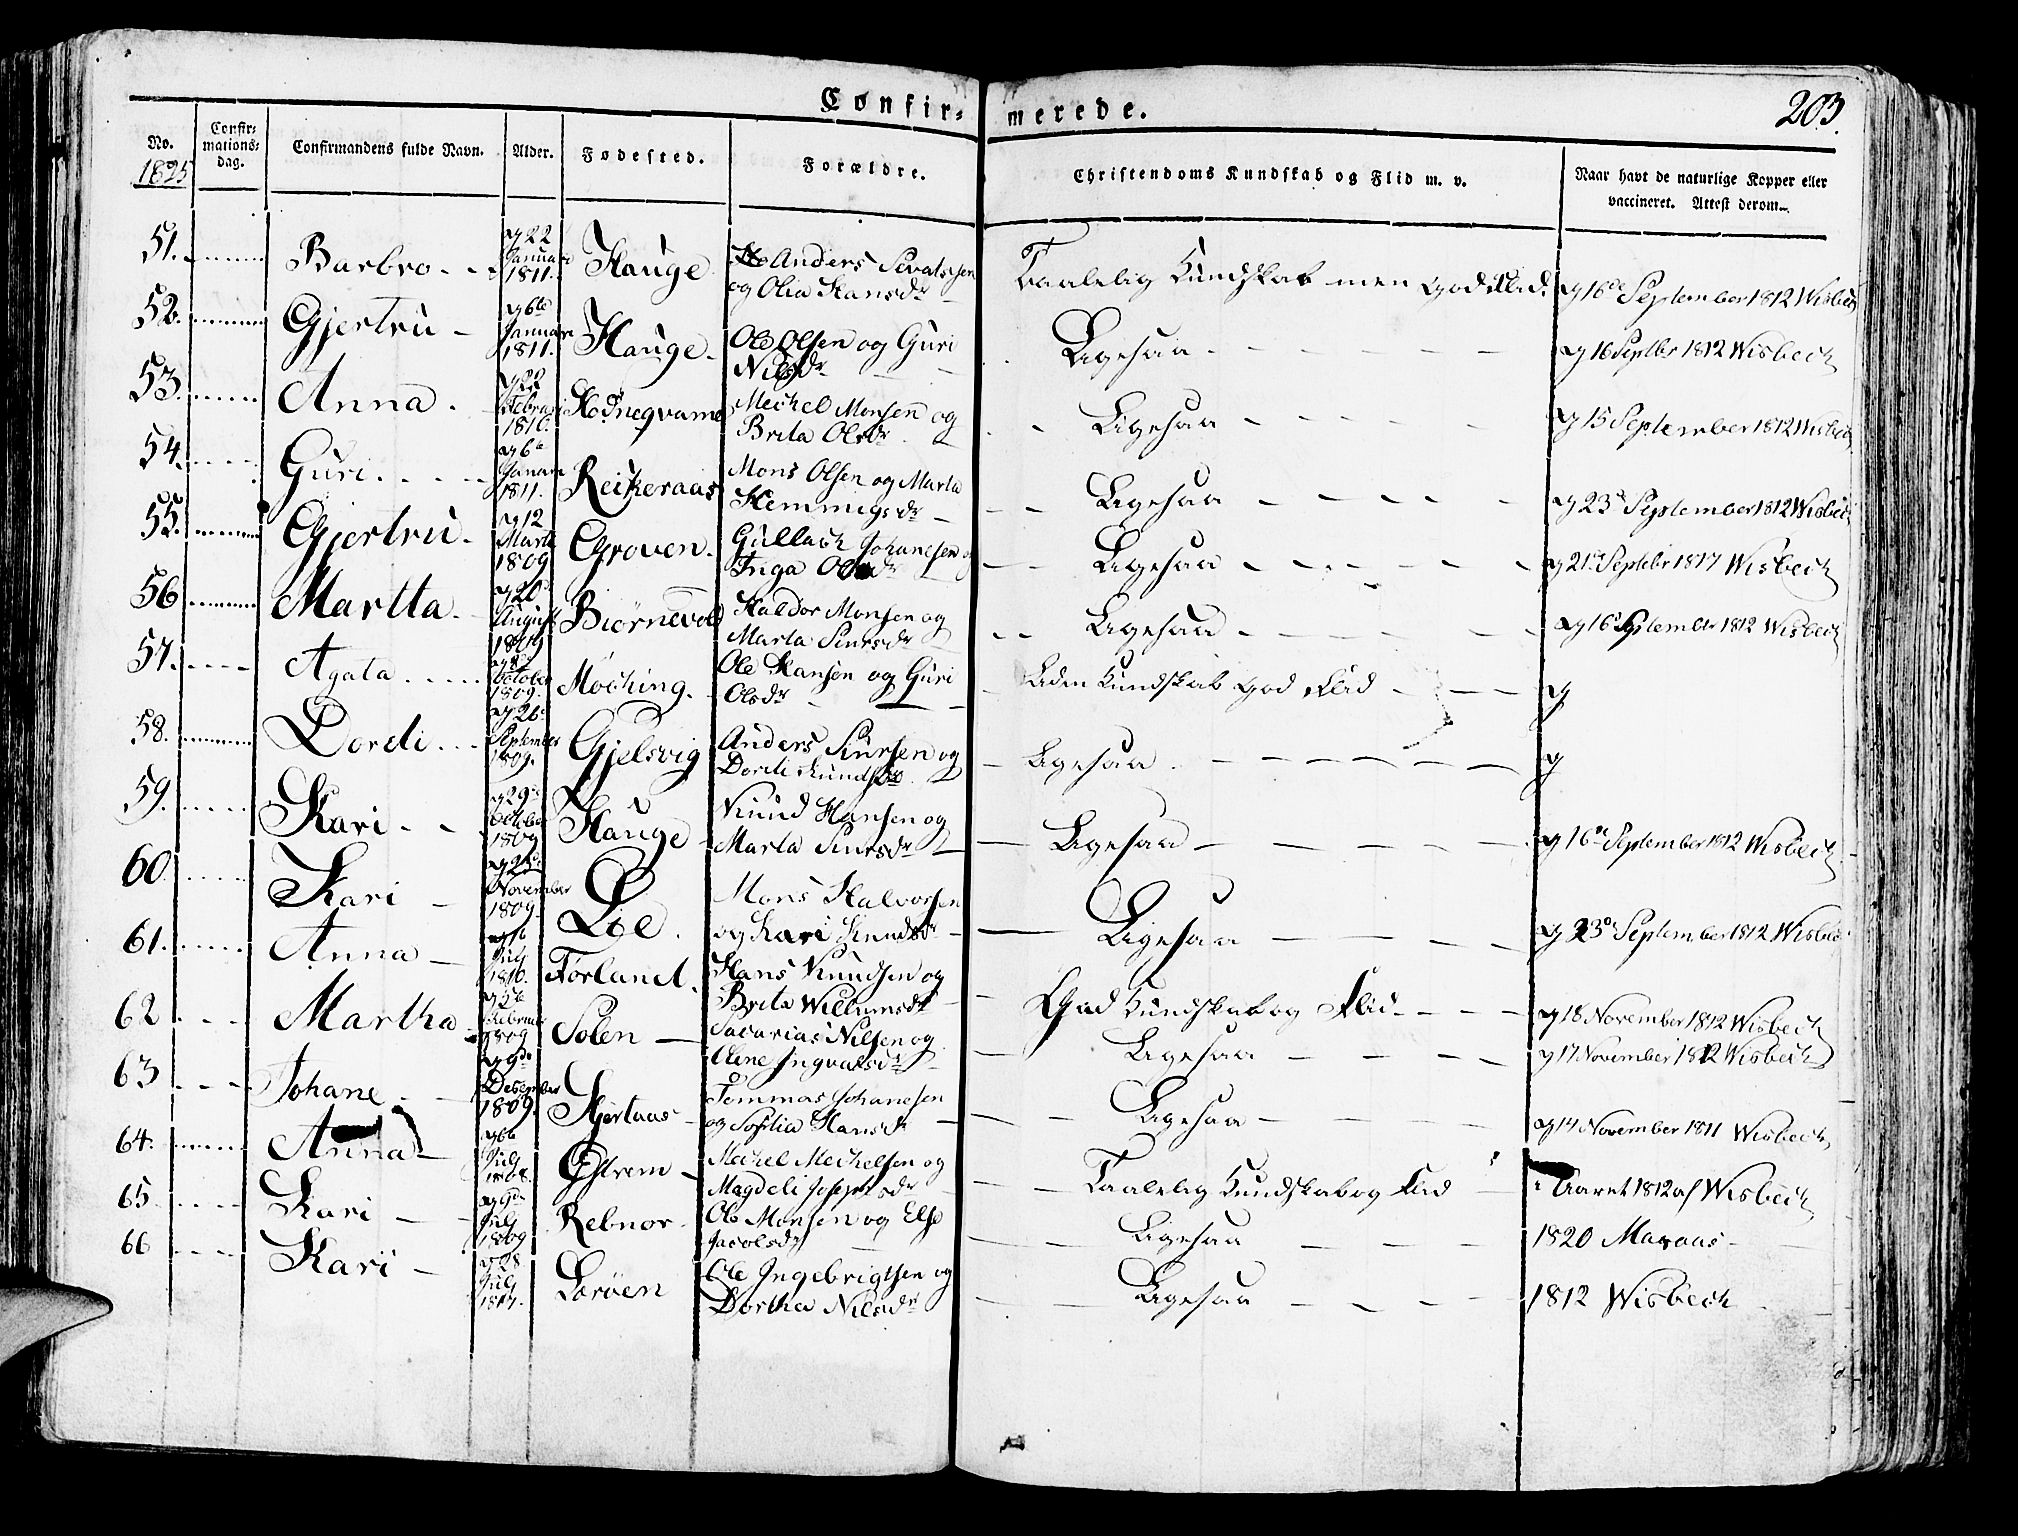 Confir-
merede.
203.
No.
1825
Confir-
mations-
dag.
Confirmandens fulde Navn.
Alder.
Fødested.
Forældre.
Christendoms Kundskab og Flid m. v.
Naar havt de naturlige Kopper eller
vaccineret. Attest derom.
51. Barbro
22
Januari
1811.
Hauge
Anders Sivatssen
og Olia Hansdr
Taalelig Kundskab men god Flid.
16de September 1812 Wisbech
52. Gjertru
6te
Januari
1811.
Hauge
Ole Olsen og Guri
Nilsdr
Ligesaa
16 Septbr 1812 Wisbech
53. Anna
22
Februari
1810.
Hodnegvame
Mechel Monsen og
Brita Olsdr
Ligesaa
15 September 1812 Wisbech
54. Guri
6te
Januari
1811.
Reikeraas
Mons Olsen og Marta
Hemmigsdr
Ligesaa
23de September 1812 Wisbech
55. Gjertru
12
Marti
1809
Groven
Gullach Johanesen og
Inga Olsdr
Ligesaa
21 Septebr 1817 Wisbech
56 Martta
20
August
1809
Biørnevold
Haldor Monsen og
Marta Siursdr
Ligesaa
16 September 1812 Wisbech
57. Agata
October
1809.
Moching
Ole Hansen og Guri
Olsdr
Liden Kundskab god Flid
58. Dordi
26
September
1809.
Gjelsvig
Anders Siursen og
Dordi Knudsdr
Ligesaa
59. Kari
29
October
1809
Hauge
Knud Hansen og
Marta Siursdr
Ligesaa
16de September 1812 Wisbech
60. Kari
25
November
1809
Lie
Mons Halvorsen
og Kari Knudsdr
Ligesaa
23de September 1812 Wisbech
61. Anna
16
July
1810.
Førland
Hans Knudsen og
Brita Willumsdr
God Kundskab og Flid
18 November 1812 Wisbech
62 Martha
5te
Februari
1809
Solen
Sacarias Nilsen og
Elene Ingvalsdr
Ligesaa
17 November 1812 Wisbech
63 Johane
9de
Desember
1809.
Hjertaas
Tommas Johanesen
og Sofia Hansdr
Ligesaa
14 November 1811 Wisbech
64. Anna
6te
July
1808.
Østrem
Mechel Mechelsen og
Magdeli Josepsdr
Taalelig Kundskab og Flid
i Aaret 1812 af Wisbech
65. Kari
9de
July
1809
Rebnor
Ole Monsen og Else
Jacobsdr
Ligesaa
1820 Maraas
66 Kari
28
July
Lerøen
Ole Ingebrigtsen og
Dortha Nilsdr
Ligesaa
1812 Wisbech